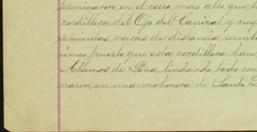 terminaron en el cerro mas alto que
cordillera del Ojo del Carrizal y cuy
vecientas varas de distancia rumb
único puerto que esta cordillera hace
Alamos de Peña, lindando todo con
varon en una mohonera de Santo D